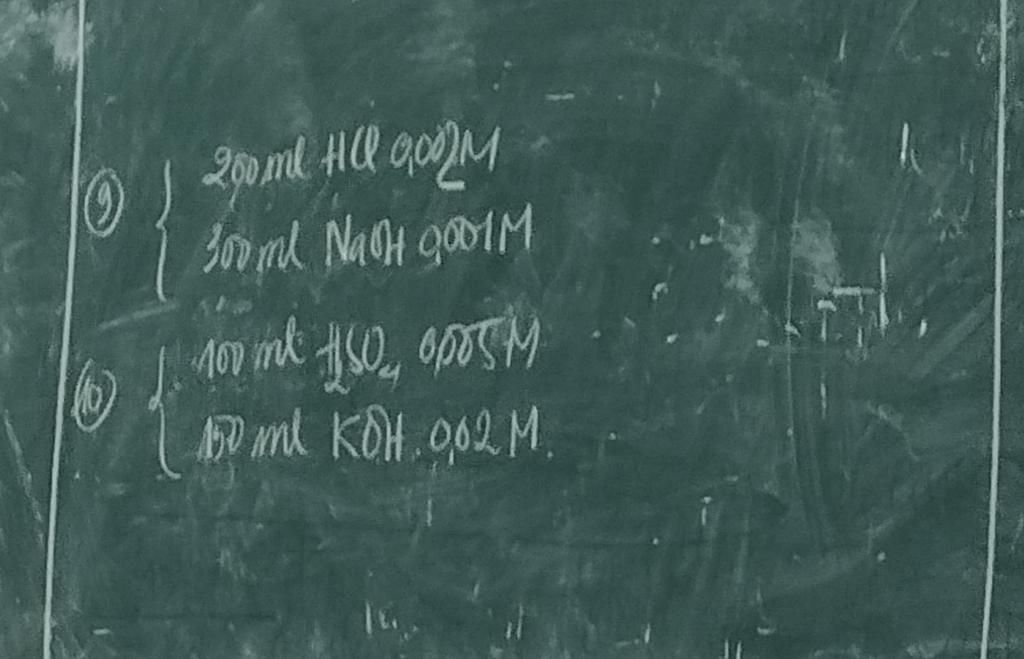 ⑨ { 200ml HCl 0,002M
300ml NaOH 0,001M
⑩ { 100ml H₂SO₄ 0,005M
150ml KOH 0,02M.